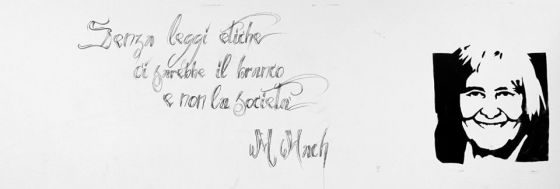 Senza leggi etiche
ci sarebbe il branco
e non la società
M Hack